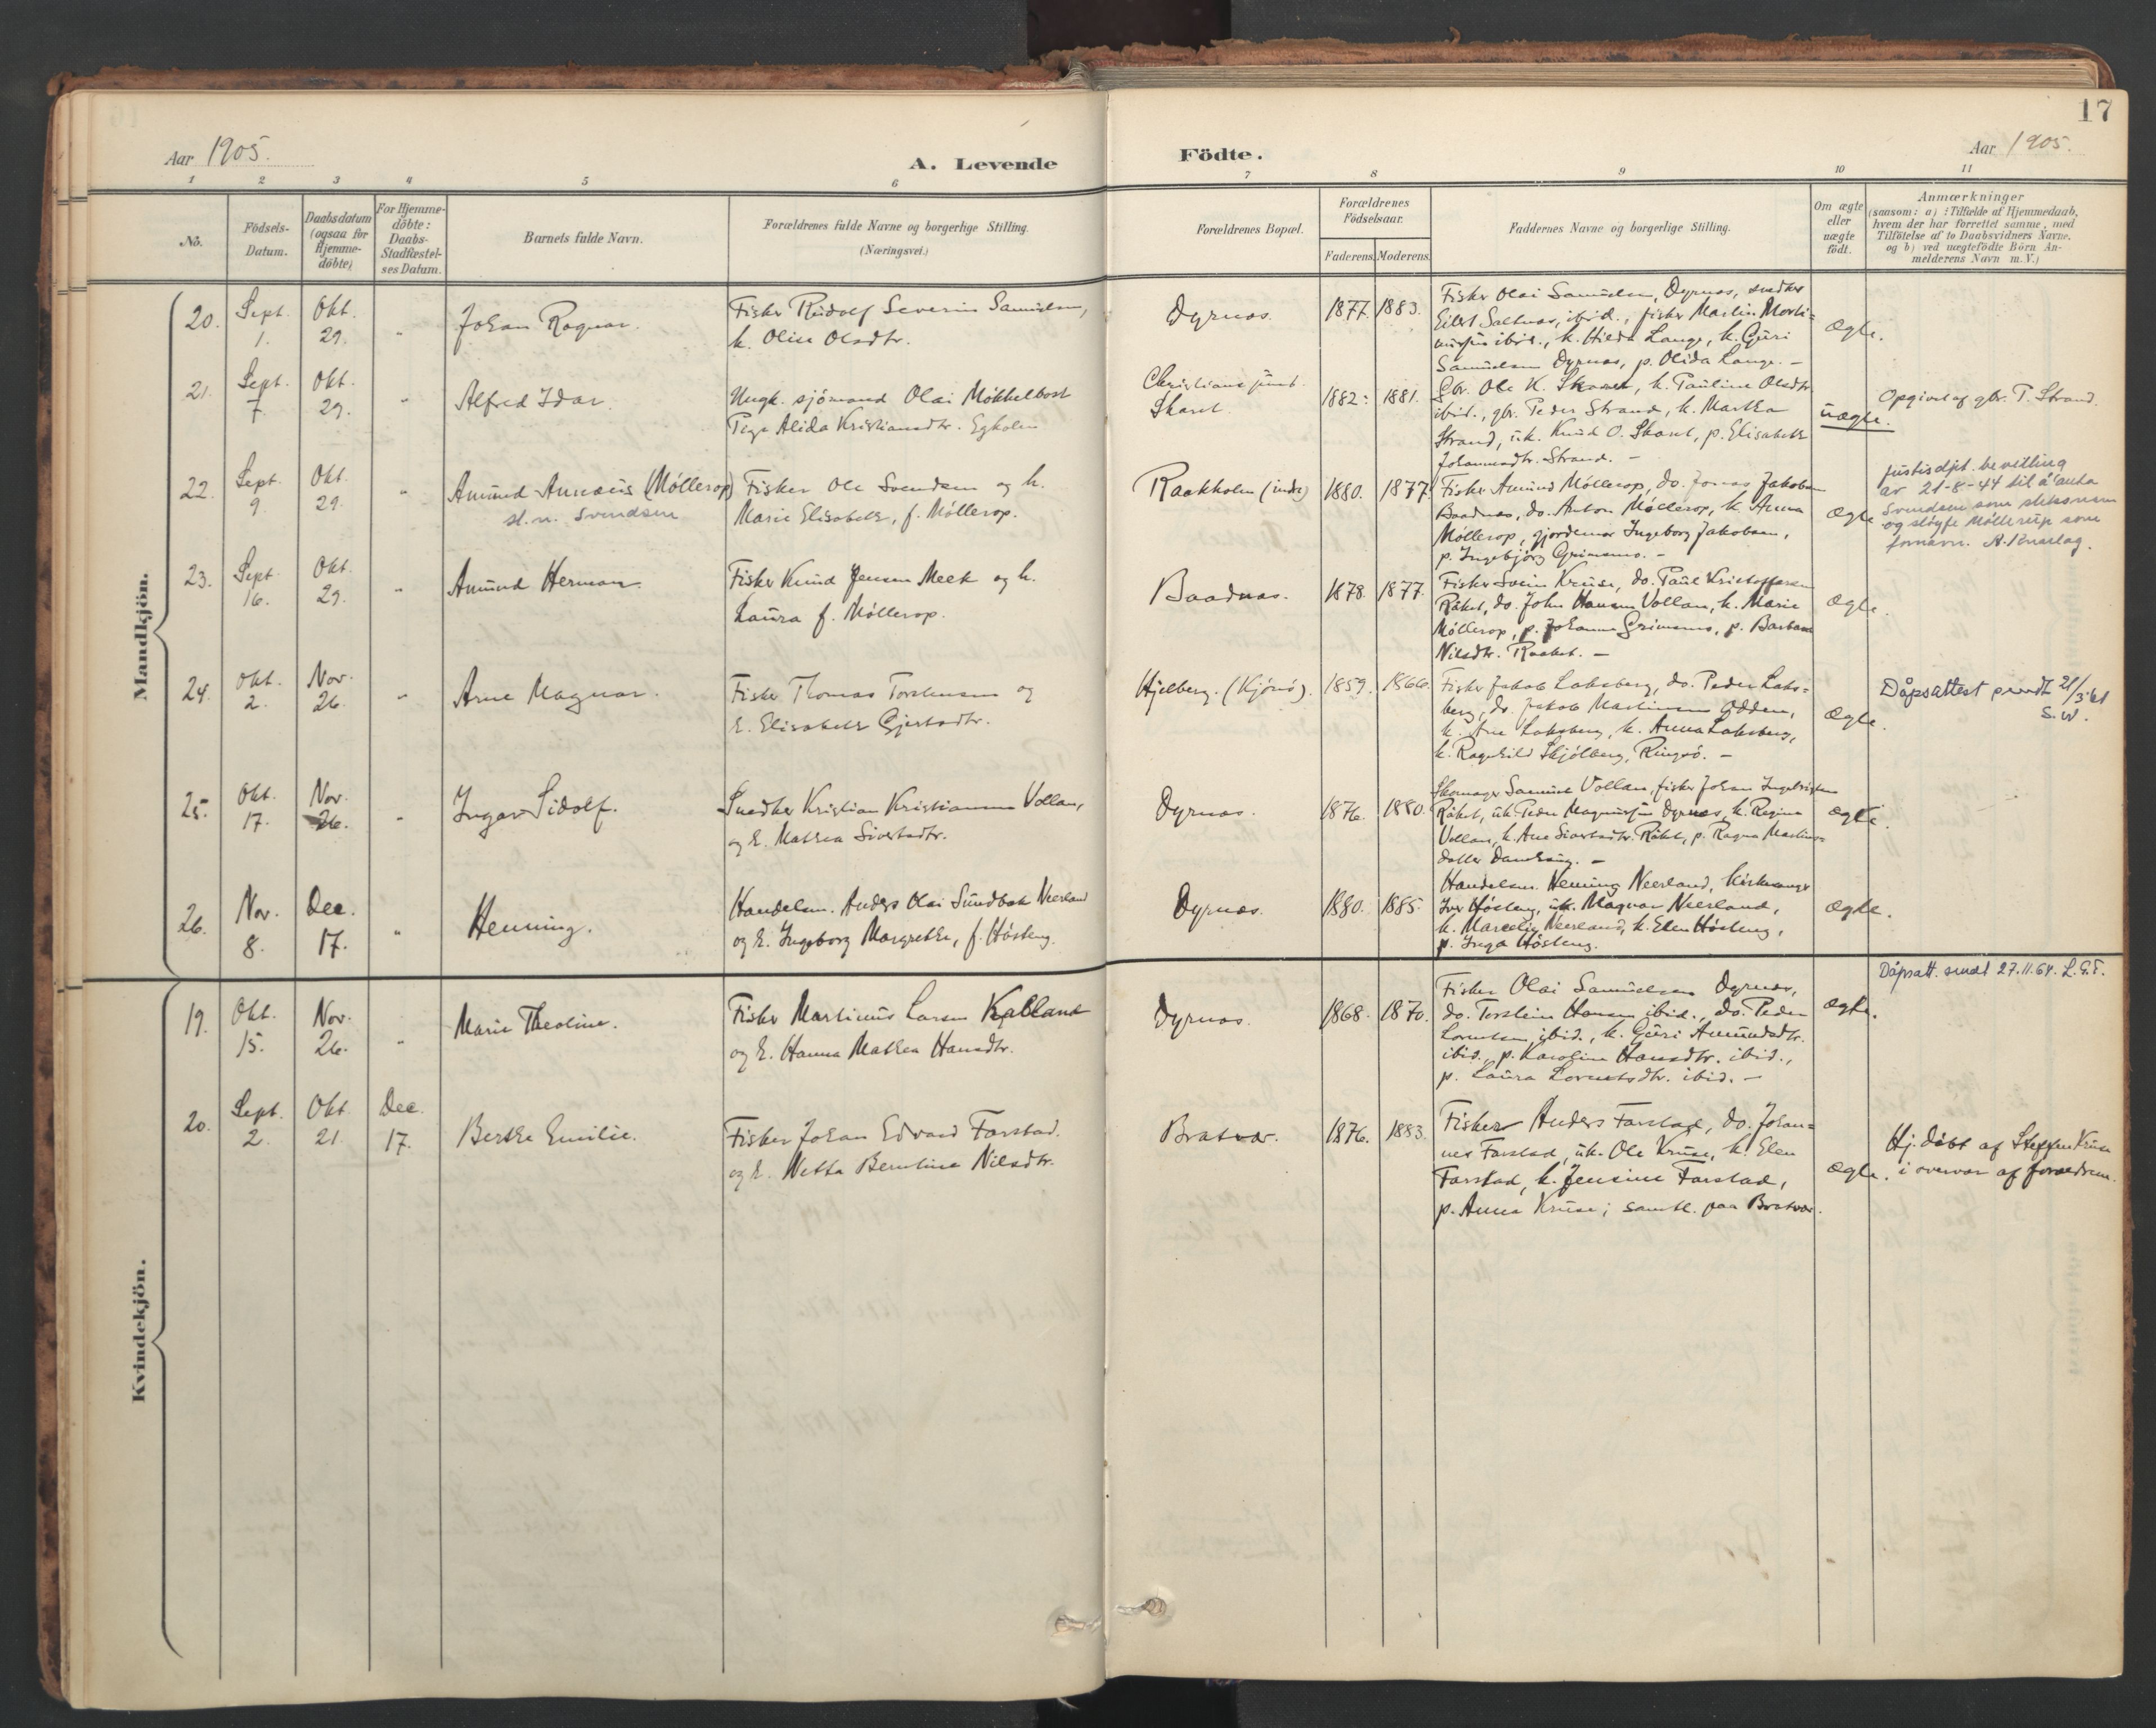 17
Aar 1905.
A. Levende
Födte.
Aar 1905.
1 2 3 4 5 6 7 8 9 10 11
No.
Födsels-
Datum.
Daabsdatum
(ogsaa for
Hjemme-
döbte)
For Hjemme-
döbte:
Daabs-
Stadfæstel-
ses Datum.
Barnets fulde Navn.
Forældrenes fulde Navne og borgerlige Stilling.
(Næringsvei.)
Forældrenes Bopæl.
Forældrenes
Födselsaar.
Faderens. Moderens.
Faddernes Navne og borgerlige Stilling.
Om ægte
eller
uægte
födt.
Anmærkninger
(saasom: a) : Tilfælde af Hjemmedaab,
hvem der har forrettet samme, med
Tilföielse af to Daabsvidners Navne,
og b) ved uægtefödte Börn An-
melderens Navn m. V.)
Mandkjön.
20.
Sept.
1.
Okt.
29.
"
Johan Ragnar.
Fisker Rudolf Severin Samuelsen,
h. Oline Olsdtr.
Dyrnæs.
1877. 1883.
Fisker Olai Samuelsen, Dyrnæs, snedker
Eilert Saltnæs, ibid., fisker Martin Morti=
ibid., k. Hilda Lange, k. Guri
Samuelsen Dyrnæs, p. Olida Lange. –
ægte.
21.
Sept.
7.
Okt.
29.
"
Alfred Idar.
Ungk. sjömand Olai Mökkelbost
Pige Alida Kristiansdtr. Egholm
Skaret.
1882: 1881.
Gbr. Ole K. Skaret, k. Pauline Olsdtr.
ibid., gbr. Peder Strand, k. Martha
Strand, uk. Knud O. Skaret, p. Elisabeth
Johannesdtr. Strand. –
uægte.
Opgivet af gbr. P. Strand.
22.
Sept.
9.
Okt.
29.
"
Amund Annæus (Möllerop)
sl.n. Svendsen
Fisker Ole Svendsen og h.
Marie Elisabeth, f. Möllerop.
Raakholm (indre)
1880. 1877.
Fisker Amund Möllerop, do. Jonas Jakobsen
Baadnæs, do. Anton Möllerop, k. Anna
Möllerop, gjordemor Ingeborg Jakobsen,
p. Ingebjörg Grimsmo. –
ægte
Justisdpt. bevilling
av 21-8-44 til å anta
Svendsen som slektsnavn
og slöyfe Möllerup som
fornavn. A. Knarlag.
23.
Sept.
16.
Okt.
29.
"
Amund Herman.
Fisker Knud Jensen Meek og h.
Laura f. Möllerop.
Baadnæs.
1878. 1877.
Fisker Svein Kruse, do. Paul Kristoffersen
Röket, do. John Hansen Vollan, k. Marie
Möllerop, p. Johanna Grimsmo, p. Barbara
Nilsdtr. Raaket. –
ægte.
24.
Okt.
2.
Nov.
26.
"
Arne Magnar.
Fisker Thomas Torstensen og
h. Elisabeth Gjertsdtr.
Hjelberg. (Kjörö).
1859. 1866.
Fisker Jakob Laksberg, do. Peder Laks=
berg, do. Jakob Martinsen Odden,
k. Ane Laksberg, k. Anna Laksberg,
k. Ragnhild Skjölberg, Ringsö. –
ægte.
Dåpsattest sendt 21/3 61
S.W.
25.
Okt.
17.
Nov.
26.
"
Ingar Sidolf.
Snedker Kristian Kristiansen Vollan,
og h. Mathea Sivertsdtr.
Dyrnæs.
1876. 1880.
Skomager Samuel Vollan, fisker Johan Ingebrigtsen
Röket, uk. Peder Magnussen Dyrnæs, k. Regine
Vollan, k. Ane Sivertsdtr. Röket, p. Ragna Martinus=
datter.
ægte.
26.
Nov.
8.
Dec.
17.
"
Henning.
Handelsm. Anders Olai Sundbak Neerland
og h. Ingeborg Margrethe, f. Hösteng.
Dyrnæs.
1880. 1885.
Handelsm. Henning Neerland, kirkesanger
Iver Hösteng, uk. Magnar Neerland,
k. Marcelie Neerland, k. Elen Hösteng,
p. Inga Hösteng.
ægte.
Kvindekjön.
19.
Okt.
15.
Nov.
26.
"
Marie Theoline.
Fisker Martinus Larsen Kalland
og h. Hanna Mathea Hansdtr.
Dyrnæs.
1868. 1870.
Fisker Olai Samuelsen Dyrnæs,
do. Torstein Hansen ibid., do. Peder
Lorentsen ibid., k. Guri Amundsdtr.
ibid., p. Karoline Hansdtr. ibid.,
p. Laura Lorentsdtr. ibid. –
ægte.
Dåpsatt. sendt 27.11.64. L.G.F.
20.
Sept.
2.
Okt.
21.
Dec.
17.
Berthe Emilie.
Fisker Johan Edvard Farstad.
og h. Netta Berntine Nilsdtr.
Bratvær.
1876. 1883.
Fisker Anders Farstad, do. Johan=
nes Farstad, uk. Ole Kruse, k. Elen
Farstad, k. Jensine Farstad,
p. Anna Kruse; samtl. paa Bratvær.
ægte.
Hj. döbt af Steffen Kruse
i overvær af forældrene.